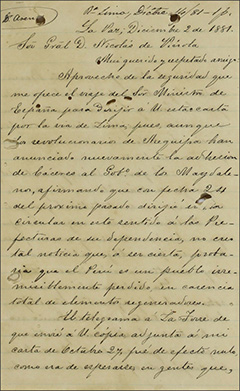 La Paz, Diciembre 2 de 1881.
Sor Gral D. Nicolás de Piérola
Mi querido y respetado amigo
Aprovecho de la seguridad que
me ofrece el viaje del Sor Ministro de
España para dirijir a U. esta carta
por la via de Lima, pues, aunque
revolucionario de Arequipa han
anunciado nuevamente la adhesion
de Cáceres al Gobo. de la Magdale-
na, afirmando que con fecha 24
del próximo pasado dirijió
circular en este sentido á las Pre-
fecturas de su dependencia, no creo
tal noticia que, á ser cierta, proba-
ria que el Perú es un pueblo irre-
misiblemente perdido, en carencia
total de elementos rejeneradores.
El telegrama a La Torre de
que envié a U. copia adjunta á mi
carta de Octubre 27, fué de efecto nulo
como era de esperarse en gentes que,